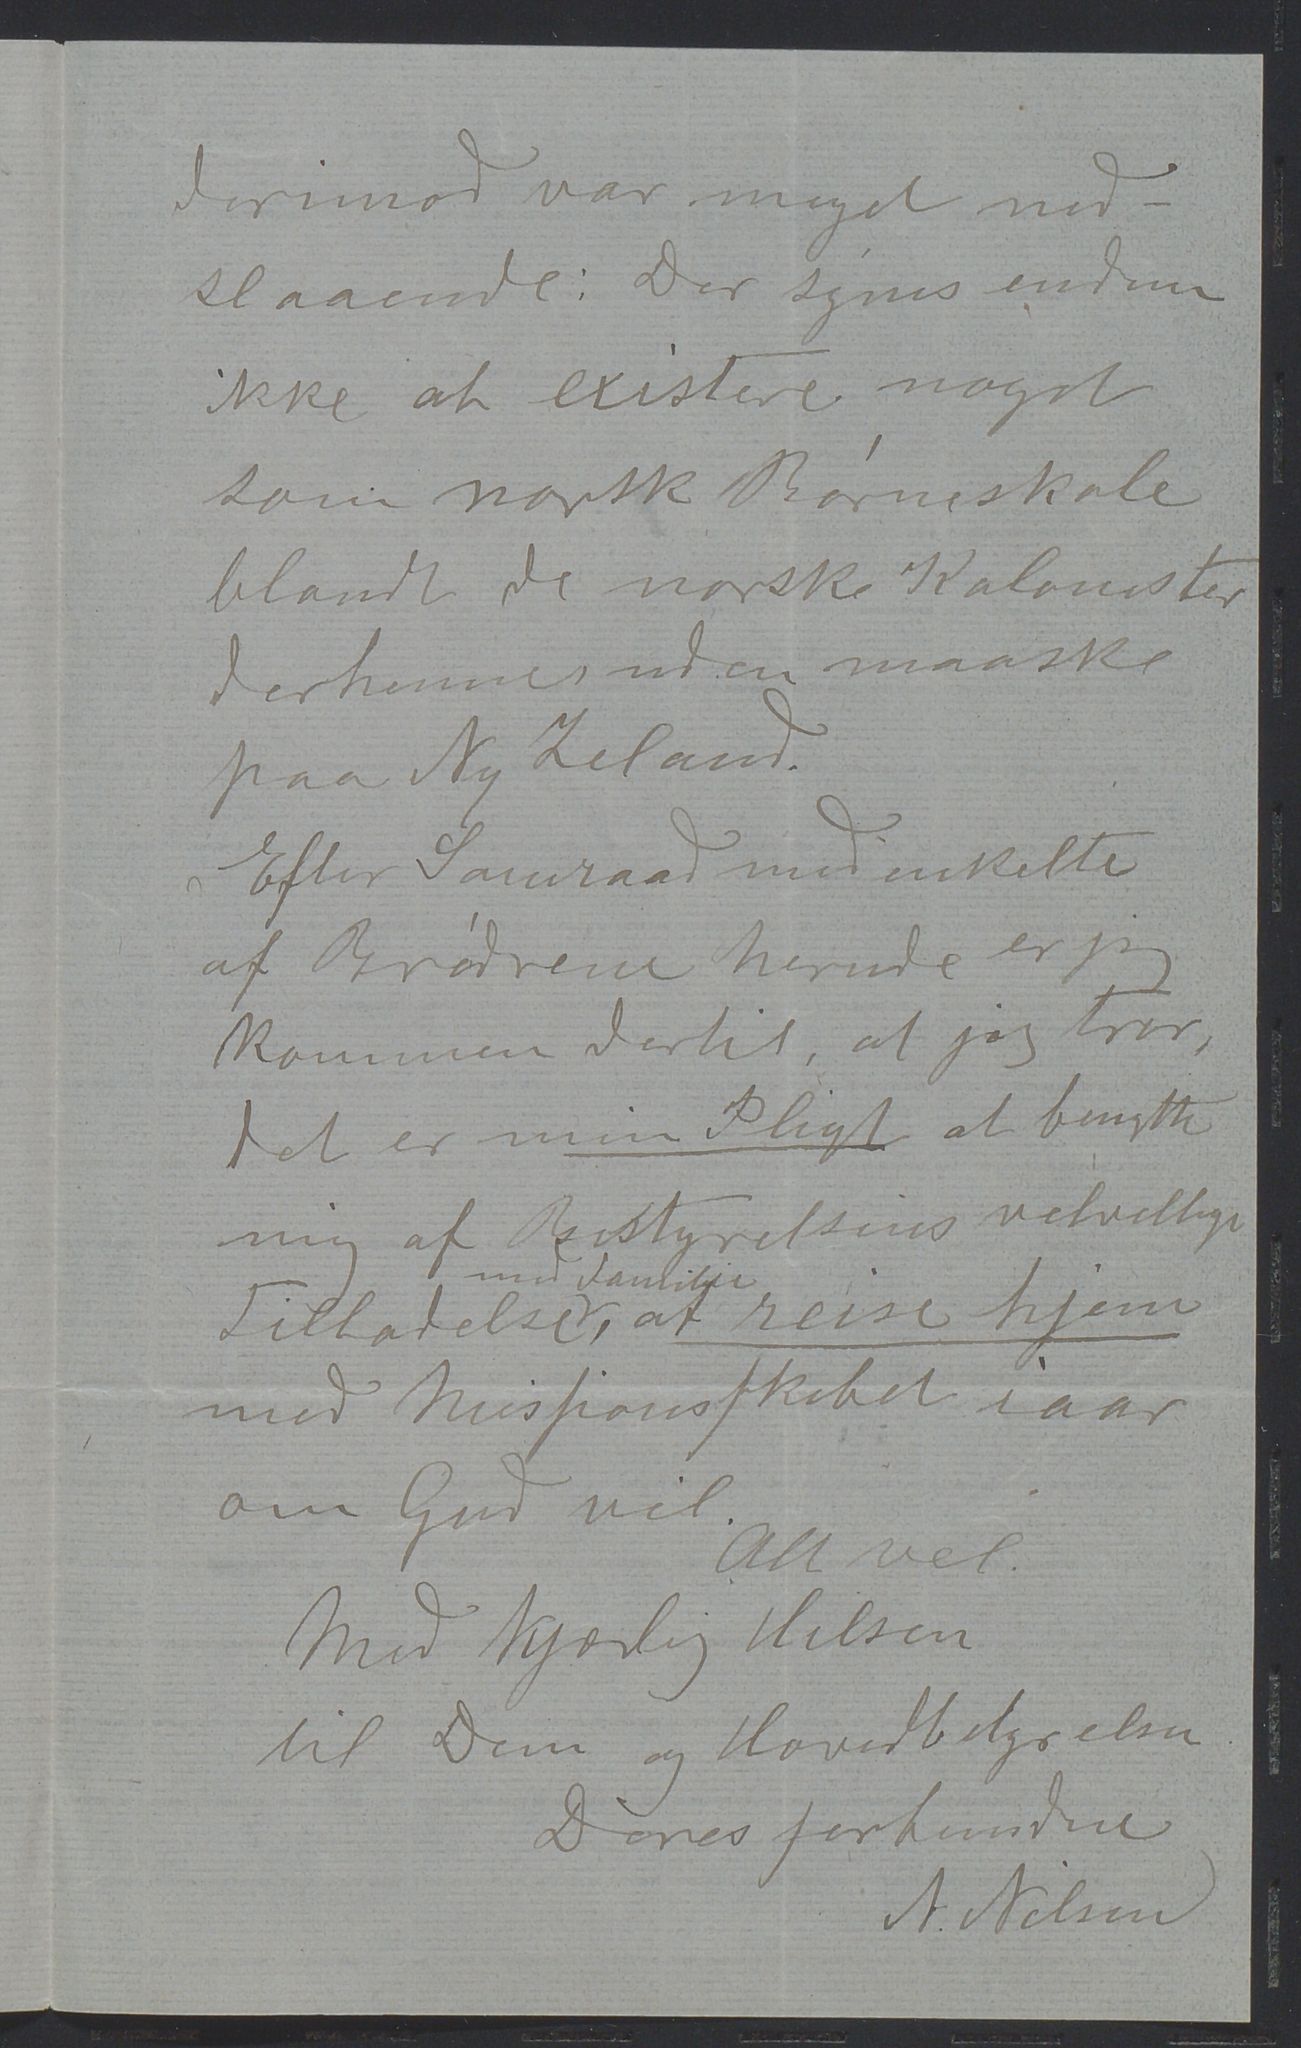 derimod var meget ned-
slaaende: Der synes endnu
ikke at existere noget
som norsk Børneskole
blandt de norske Kolonister
derhenne uden maaske
paa Ny Zeland.
Efter Samraad med enkelte
af Brødrene herude er jeg
kommen dertil, at jeg tror,
det er min Pligt at benytte
mig af Bestyrelsens velvillige
med Familie
Tilladelse, at reise hjem
med Missionsskibet iaar
om Gud vil.
Alt vel.
Med kjærlig Hilsen
til Dem og Hovedbstyrelsen
Deres forbundne
N. Nilsen